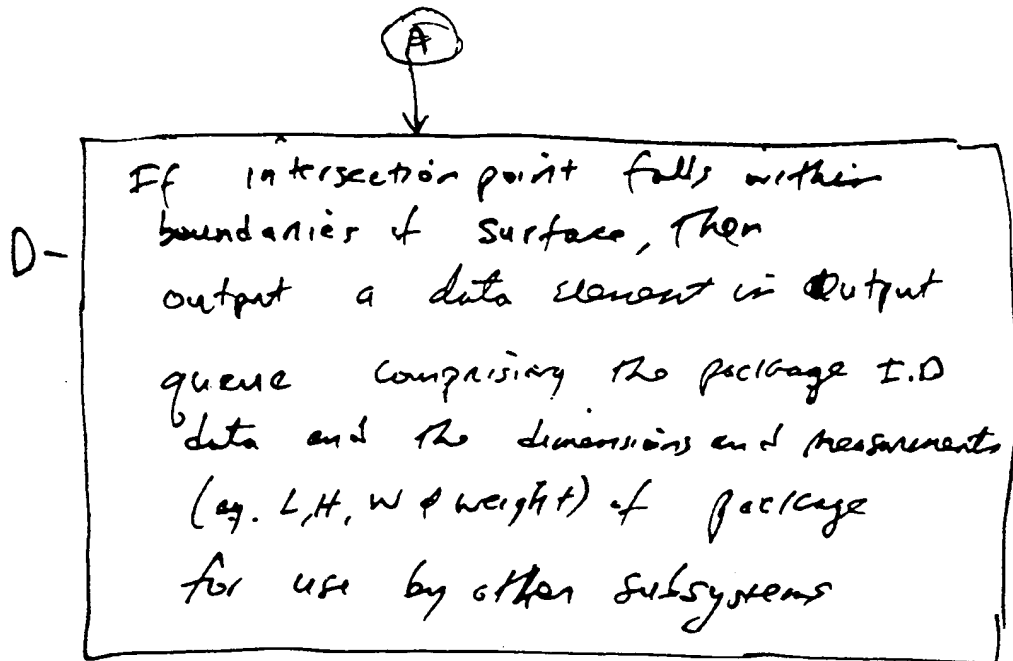 A
If intersection point falls within
D- boundaries of surface, Then
output a data element in Output
queue comprising the package I.D
data and the dimensions and measurements
(eg. L,H, W & weight) of package
for use by other subsystems